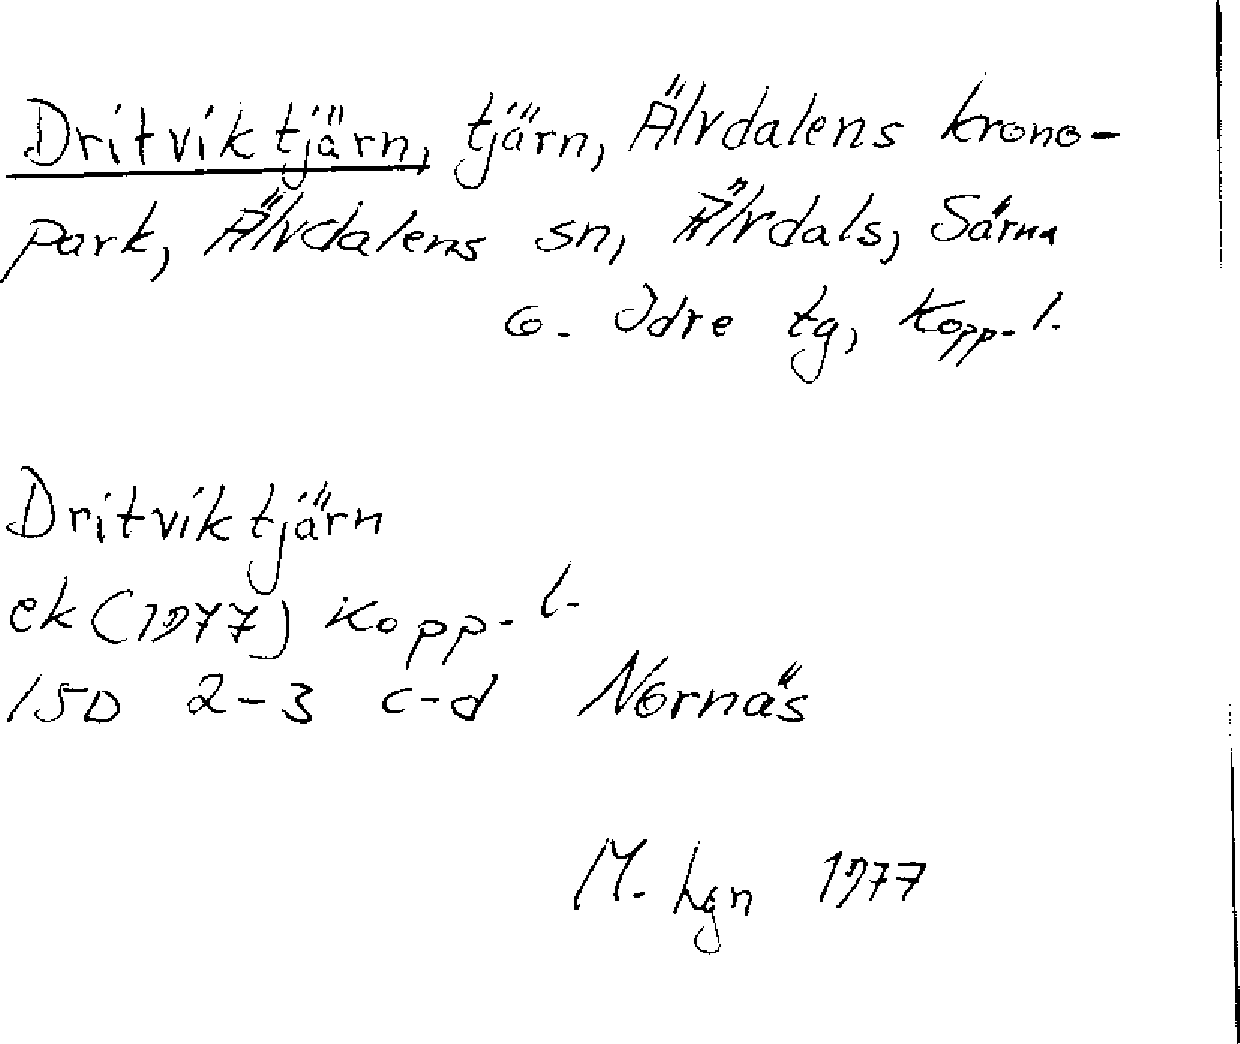 Dritviktjärn, tjärn, Älvdalens krono-
park, Älvdalens sn, Älvdals, Särna
o. Idre tg, Kopp. l.
Dritviktjärn
ek (1977) Kopp. l.
15D 2-3 c-d Nornäs
M. Lgn 1977